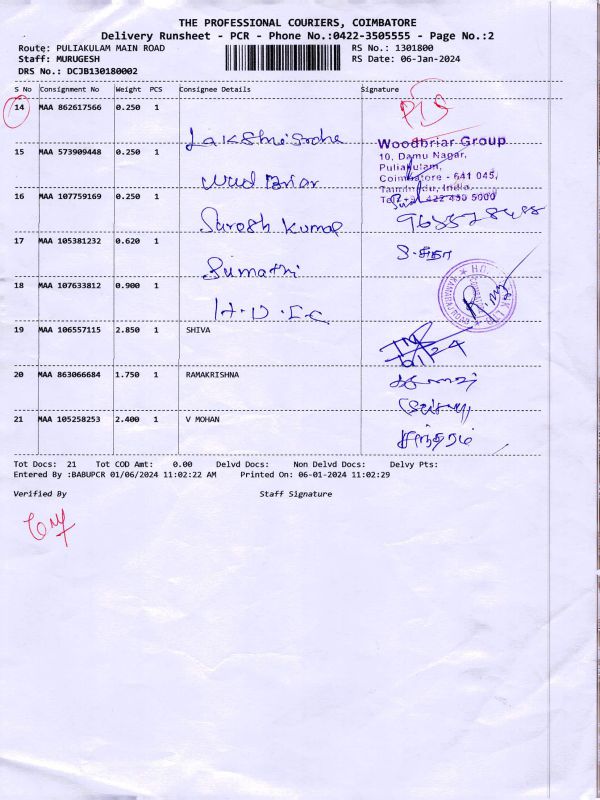 THE PROFESSIONAL COURIERS, COIMBATORE
Delivery Runsheet - PCR - Phone No.:0422-3505555 - Page No.:2
Route: PULIAKULAM MAIN ROAD
RS No.: 1301800
Staff: MURUGESH
RS Date: 06-Jan-2024
DRS No.: DCJB130180002
S No Consignment No Weight PCS Consignee Details Signature
14 MAA 862617566 0.250 1
15 MAA 573909448 0.250 1 Woodbriar Group
10, Damu Nagar,
Puliakulam,
Coimbatore - 641 045,
Tamilnadu, India.
16 MAA 107759169 0.250 1
Suresh Kumar
17 MAA 105381232 0.620 1
Sumathi
18 MAA 107633812 0.900 1
H.D.F.C
19 MAA 106557115 2.850 1 SHIVA
20 MAA 863066684 1.750 1 RAMAKRISHNA
21 MAA 105258253 2.400 1 V MOHAN
Tot Docs: 21 Tot COD Amt: 0.00 Delvd Docs: Non Delvd Docs: Delvy Pts:
Entered By :BABUPCR 01/06/2024 11:02:22 AM Printed On: 06-01-2024 11:02:29
Verified By Staff Signature